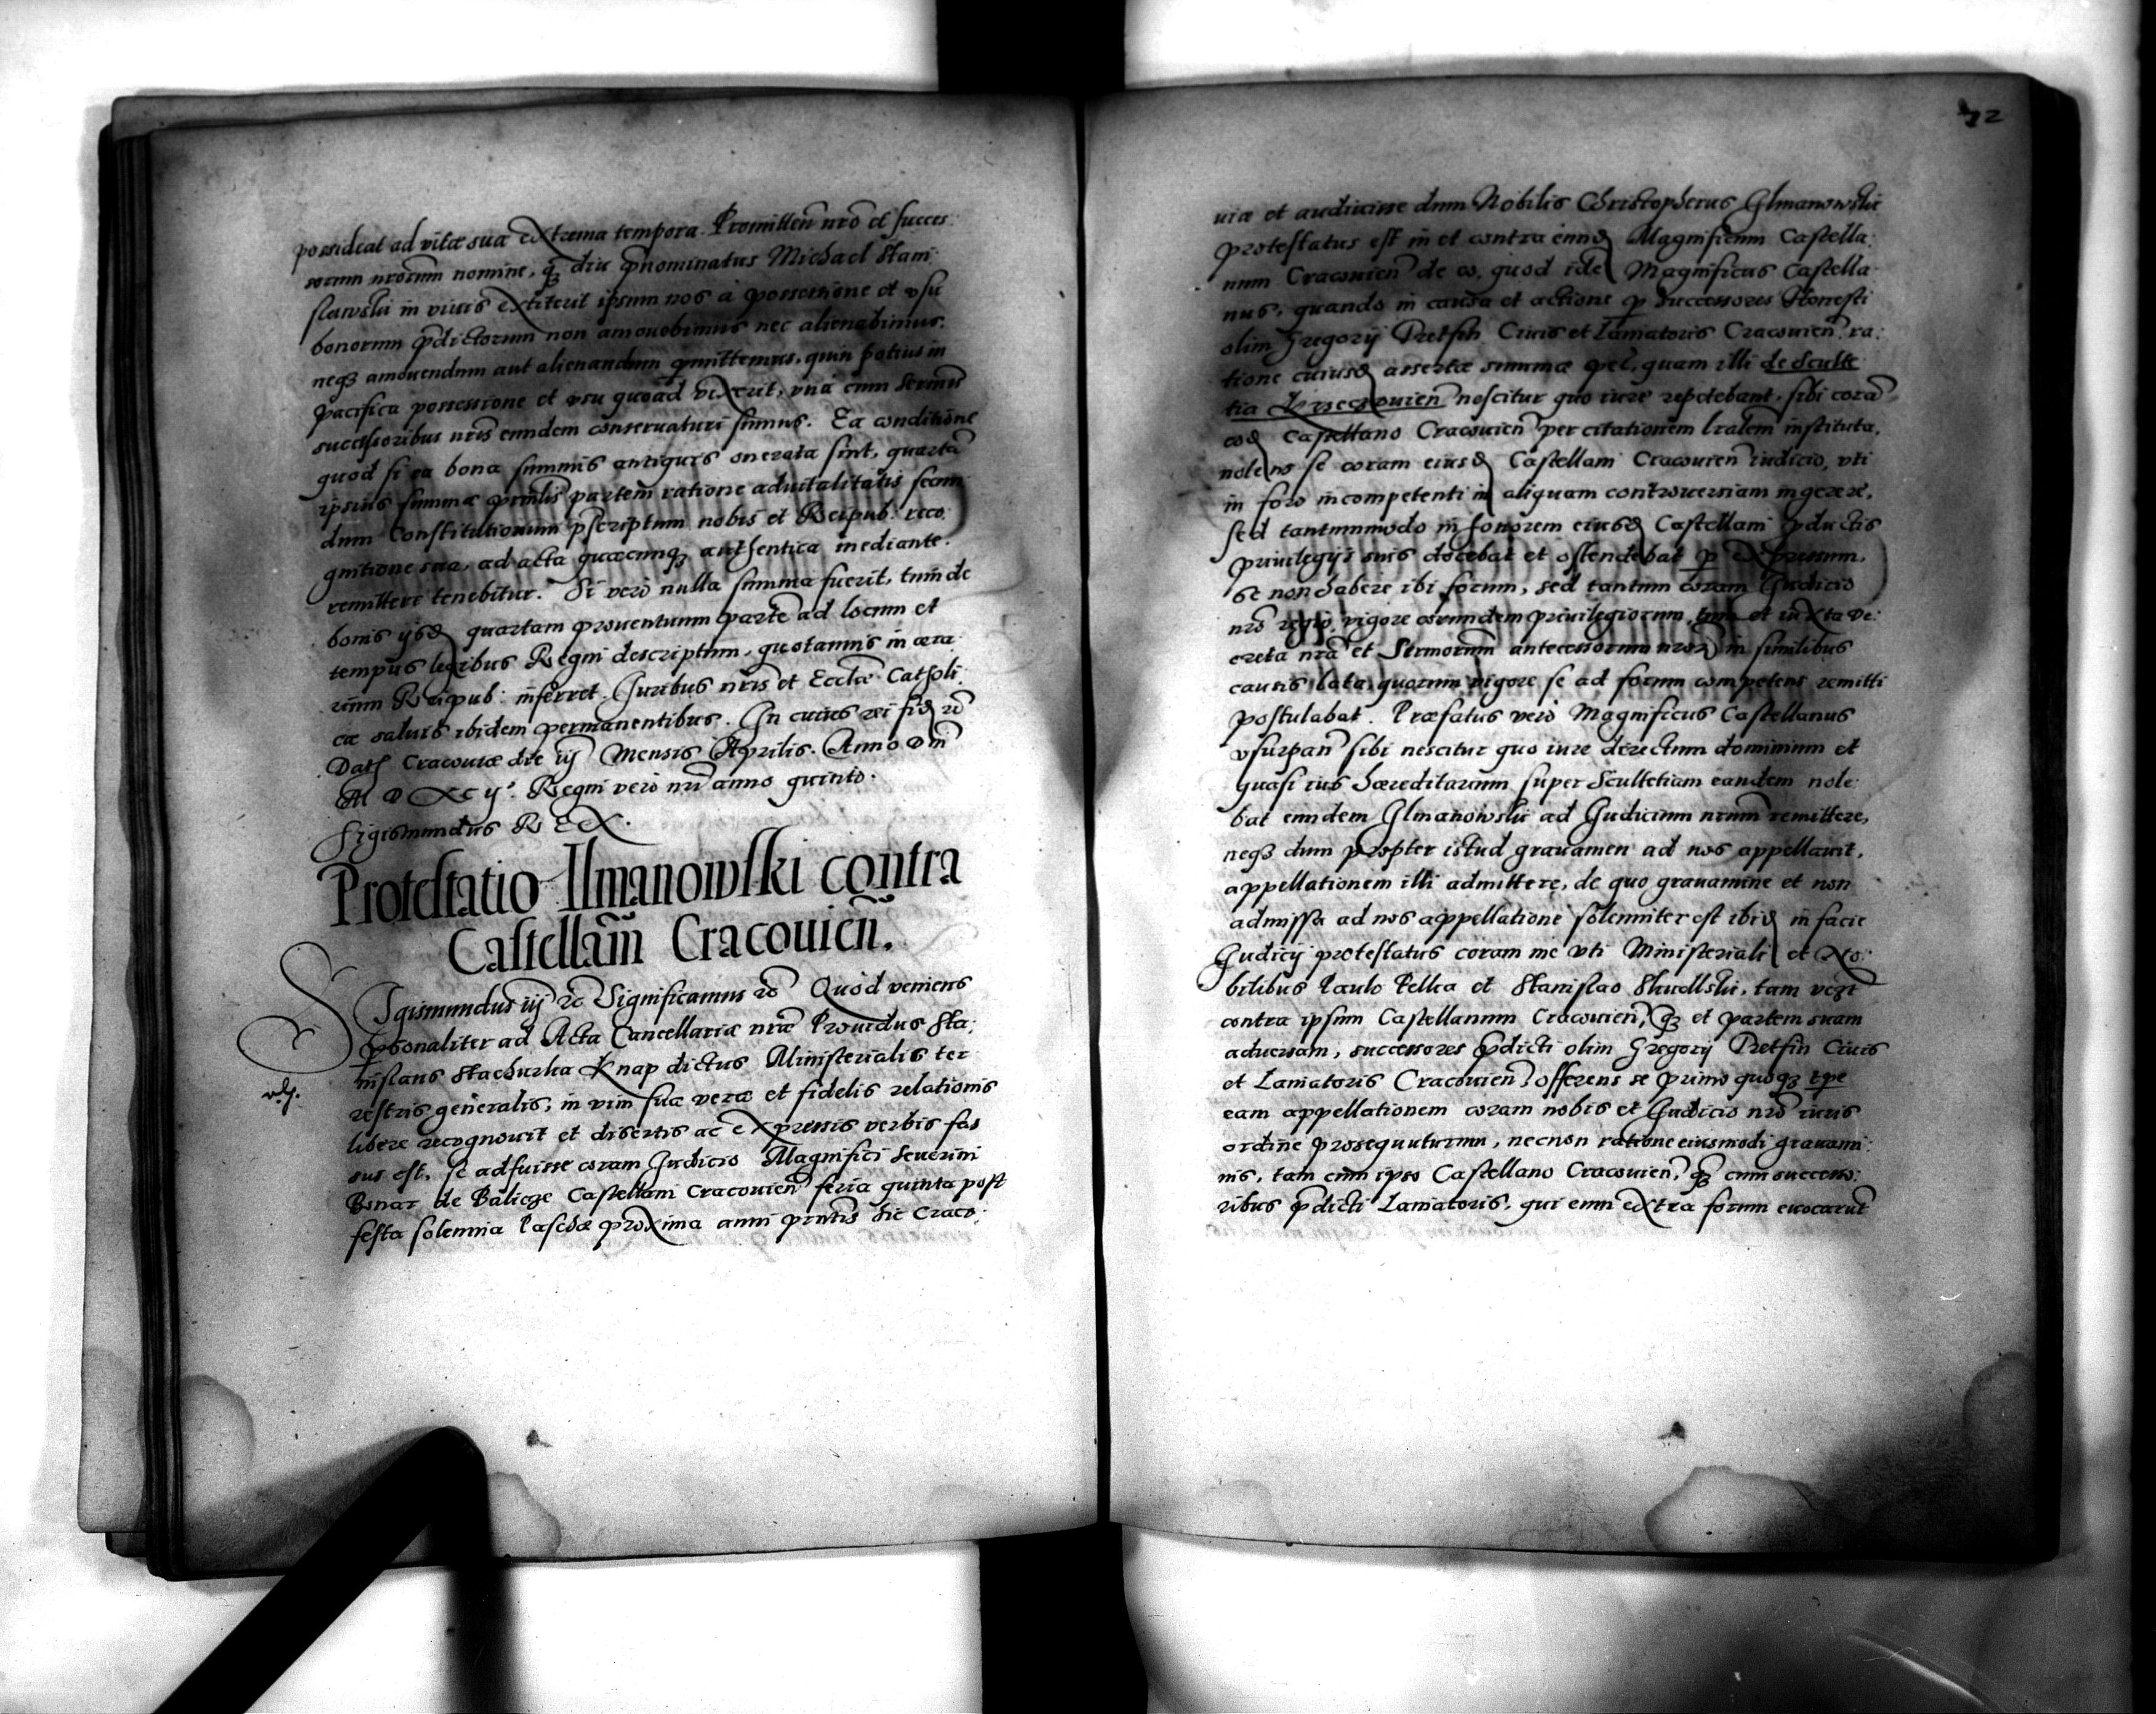 possideat ad vitæ suæ extrema tempora. Promitten̄ nr̄o et succes
sorum nrōrum nomine, q̄ȝ diu p̄nominatus Michael Stani:
slawski in viuis extiterit ipsum nos à possessione et vsu
bonorum p̄dictorum non amouebimus nec alienabimus,
neqȝ amouendum aut alienandum p̄mittemus, quin potius in
pacifica possessione et vsu quoad vixerit, vnà cum Sermis
successoribus nris eundem conseruaturi sumus. Ea conditione
quod si ea bona summis antiquis onerata sint, quartā
ipsius summæ prn̄lis partem ratione aduitalitatis secun
dum Constitutionum pscriptum nobis et Reipub: reco:
gnitione sua, ad acta quæcunqȝ authentica mediante.
remittere tenebitur. Si verò nulla summa fuerit, tum de
bonis ijsd quartam prouentuum partē ad locum et
tempus legibus Regni descriptum, quotannis in æra:
rium Reipub: inferret. Juribus nris et Ecctæ Catholi:
cæ saluis ibidem permanentibus. In cuius rei fid rc̄
Datʒ Cracouiæ die iij Mensis Aprilis. Anno Dn̄i
M D XC ijº. Regni verò nri anno quinto.
Sigismundus REX.
Protestatio Ilmanowski contra
Castellam̄ Cracouien̄.
SIgismundus iij rc̄ Significamus rc̄ Quod veniens
psonaliter ad Acta Cancellariæ nræ Prouidus Sta:
nislaus Stachurka Knap dictus Ministerialis ter
restris generalis, in vim suæ veræ et fidelis relationis
libere recognouit et disertis ac expressis verbis fas
sus est, se adfuisse coram Judicio Magnifici Seuerini
Bonar de Balicze Castellani Cracouien̄ feria quinta post
festa solemnia Paschæ proxima anni prntis hic Craco:
72
uiæ et audiuisse dum Nobilis Christopherus Jlmanowski
protestatus est in et contra eund Magnificum Castella:
num Cracouien̄ de eo, quod idē Magnificus Castella
nus, quando in causa et actione p̱ Successores Honesti
olim Gregorij Pretfin Ciuis et Laniatoris Cracouien̄ ra:
tione cuiusd assertæ summæ pec̄, quam illi de Sculte
tia nescitur quo iure repetebant, sibi corā
eod Castellano Cracouien̄ per citationem lralem instituta,
nolens se coram eiusd Castellani Cracouien̄ iudicio, vti
in foro incompetenti in aliquam controuersiam ingerere,
sed tantummodo in honorem eiusd Castellani p̱ductis
priuilegijs suis docebat et ostendebat p̱ expressum,
se non habere ibi forum, sed tantum coram Judicio
nrō regio, vigore eorundem priuilegiorum, tum et iuxta De:
creta nrā et Sermorum antecessorum nror̄ in similibus
causis lata, quorum vigore se ad forum competens remitti
postulabat. Præfatus verò Magnificus Castellanus
vsurpan̄ sibi nescitur quo iure directum dominium et
quasi ius hæreditarium super Scultetiam eandem nole:
bat eundem Jlmanowski ad Judicium nrum remittere,
neqȝ dum propter istud grauamen ad nos appellauit,
appellationem illi admittere, de quo grauamine et non
admissa ad nos appellatione solenniter est ibid in facie
Judicij protestatus coram me vti Ministeriali et No:
bilibus Paulo Pelka et Stanislao Skuellski, tam
contra ipsum Castellanum Cracouien̄, q̄ȝ et partem suam
aduersam, successores p̄dicti olim Gregorij Pretfin Ciuis
et Laniatoris Cracouien̄ offerens se primo quoqȝ tp̄e
eam appellationem coram nobis et Judicio nrō iuris
ordine prosequuturum, necnon ratione eiusmodi grauami:
nis, tam cum ipso Castellano Cracouien̄, q̄ȝ cum success:
ribus p̄dicti Laniatoris, qui eum extra forum euocarūt